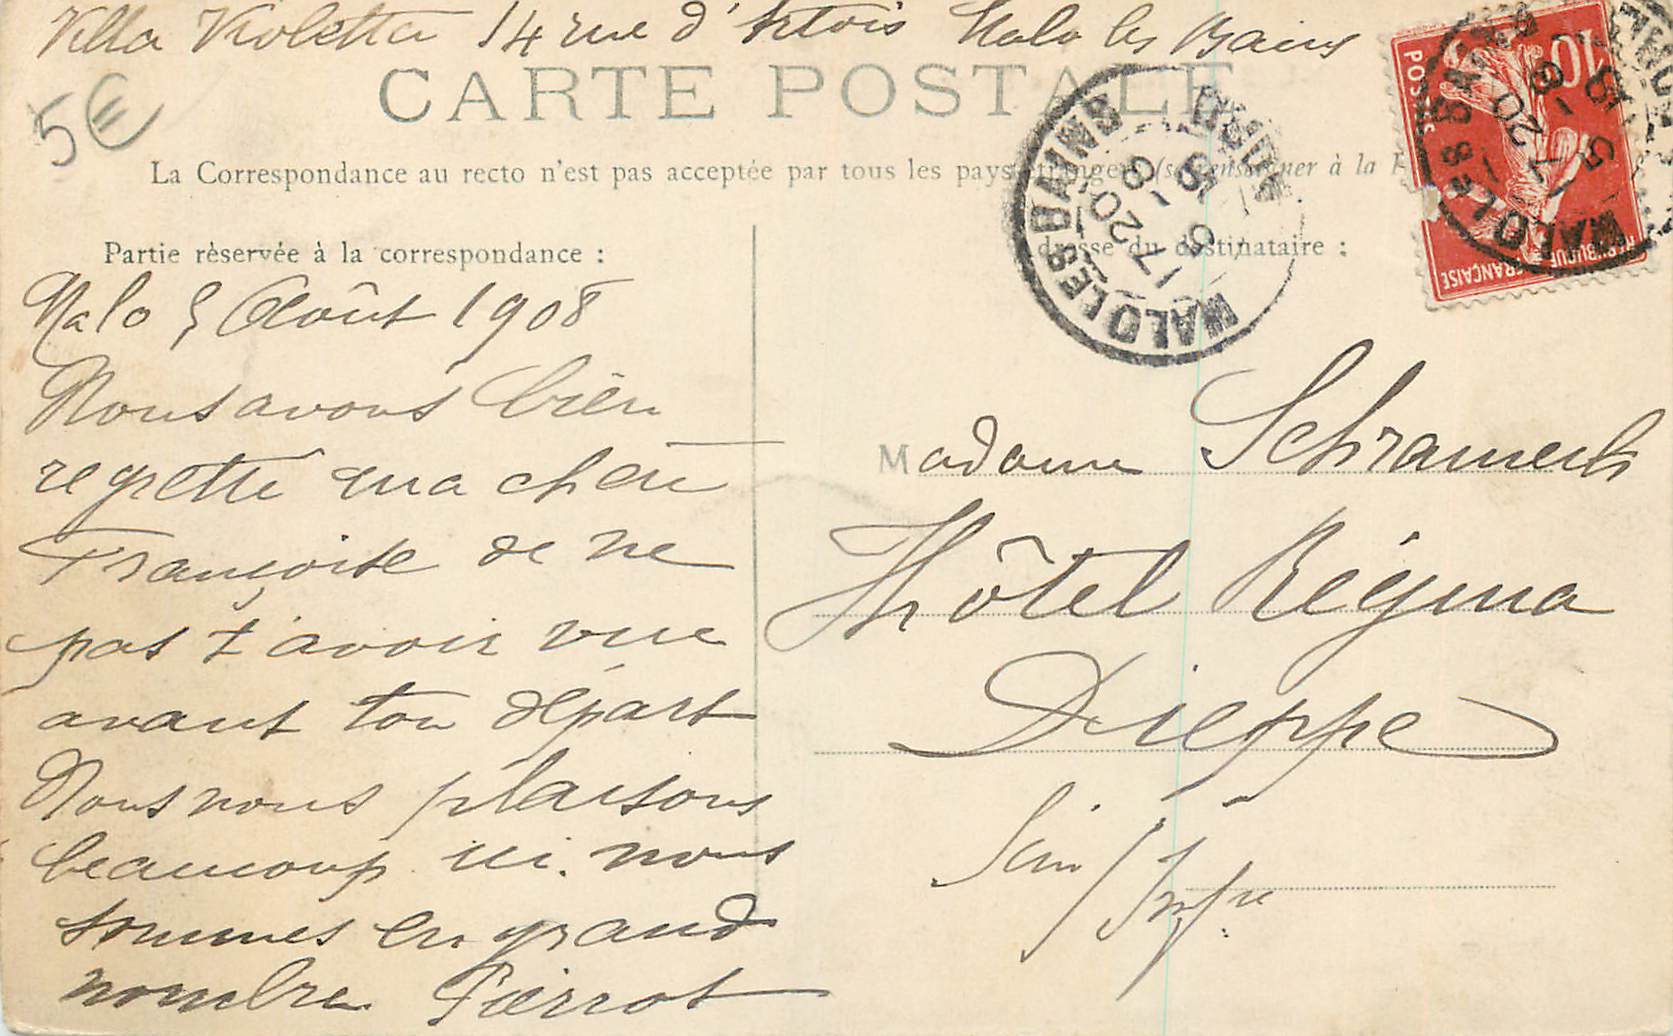 Villa Violetta 14 rue d'Artois Malo les Bains
5€
CARTE POSTALE
La Correspondance au recto n'est pas acceptée par tous les pays étrangers (se renseigner à la
Partie réservée à la correspondance :
Adresse du destinataire :
Malo 5 Août 1908
Nous avons bien
regretté ma chère
Françoise de ne
pas t'avoir vue
avant ton départ
Nous nous plaisons
beaucoup ici. nous
sommes en grand
nombre Pierrot
Madame Schrameck
Hôtel Régina
Dieppe
Seine / Infre
MALO LES BAINS NORD
17 20
5 - 8
08
10
POSTES
RÉPUBLIQUE FRANÇAISE
MALO LES BAINS NORD
17 20
5 - 8